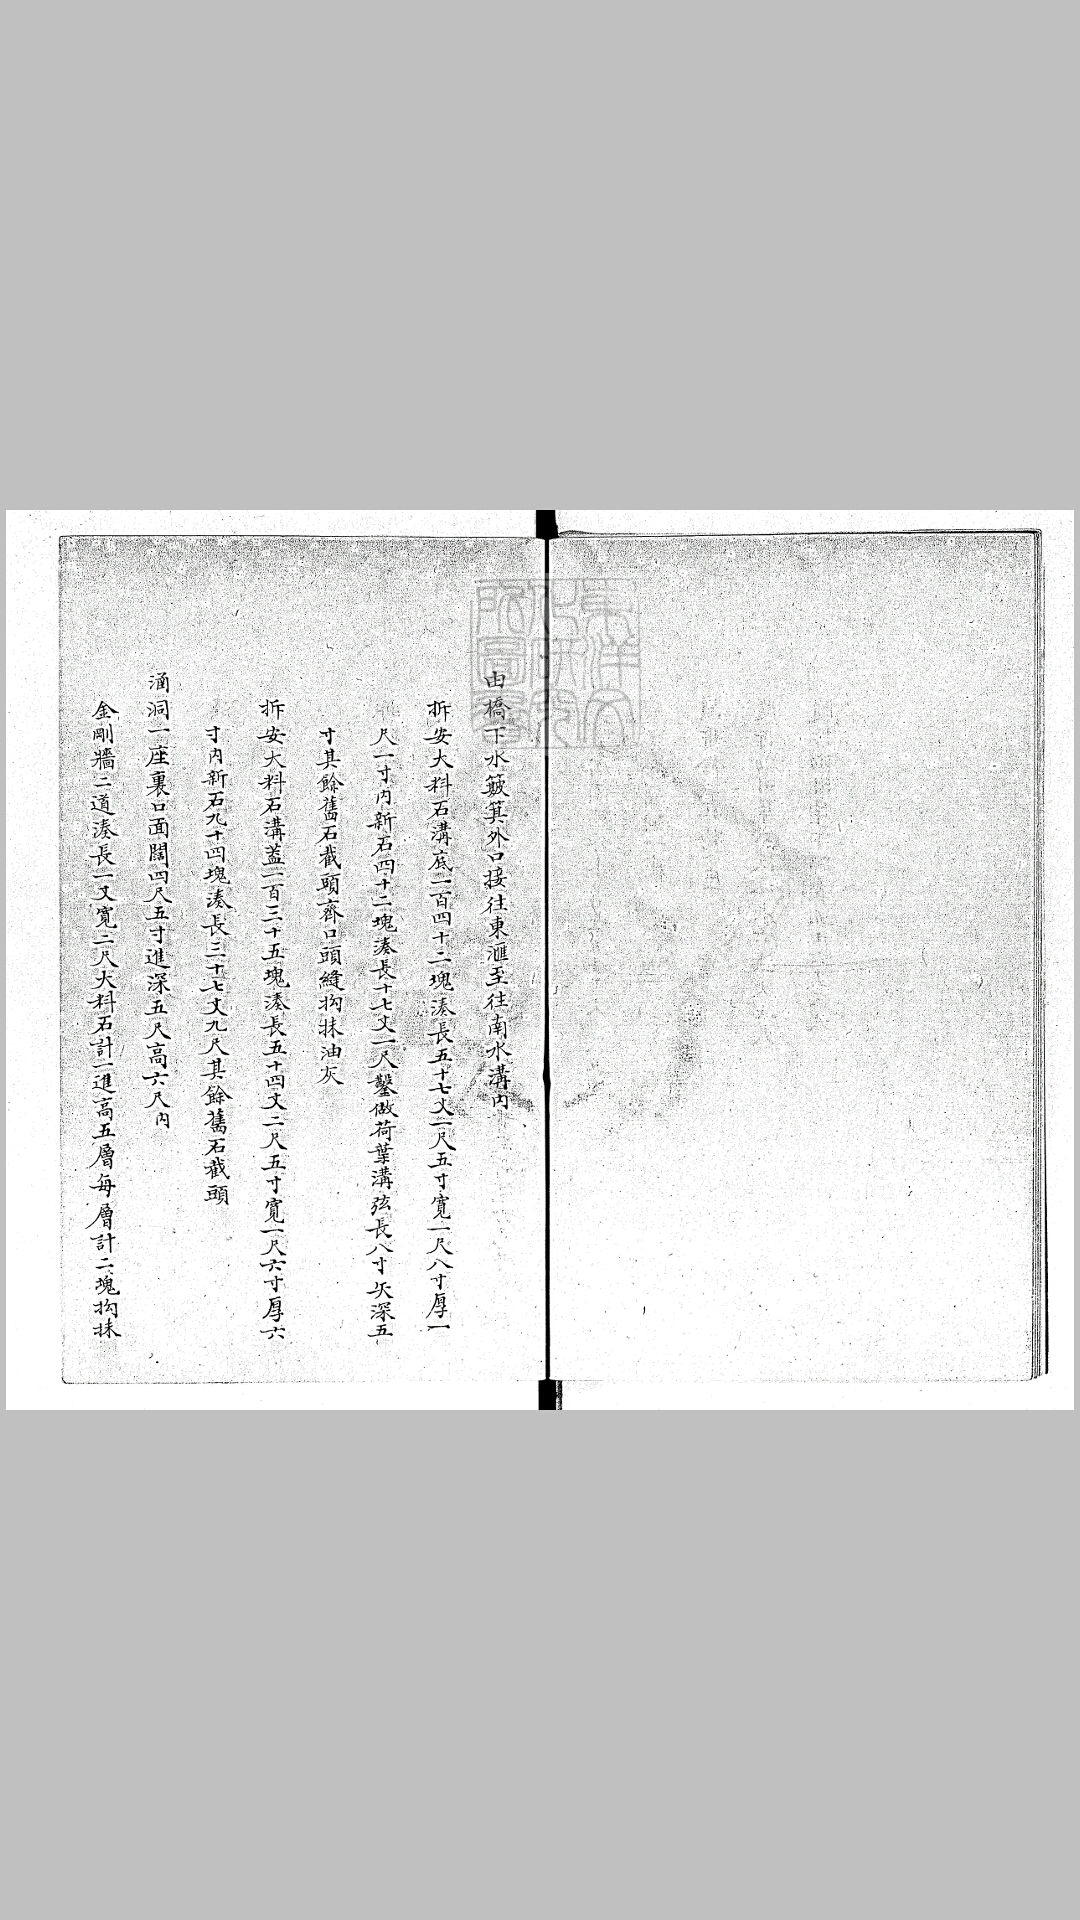 由橋下水簸箕外口接往東滙至往南水溝內
拆安大料石溝底一百四十二塊湊長五十七丈一尺五寸寬一尺八寸厚一
尺一寸內新石四十二塊湊長十七丈一尺鑿做荷葉溝弦長八寸矢深五
寸其餘舊石截頭齊口頭縫抅抹油灰
拆安大料石溝蓋一百三十五塊湊長五十四丈二尺五寸寬一尺六寸厚六
寸內新石九十四塊湊長三十七丈九尺其餘舊石截頭
涵洞一座裏口面闊四尺五寸進深五尺高六尺內
金剛牆二道湊長一丈寬二尺大料石計一進高五層每層計二塊抅抹